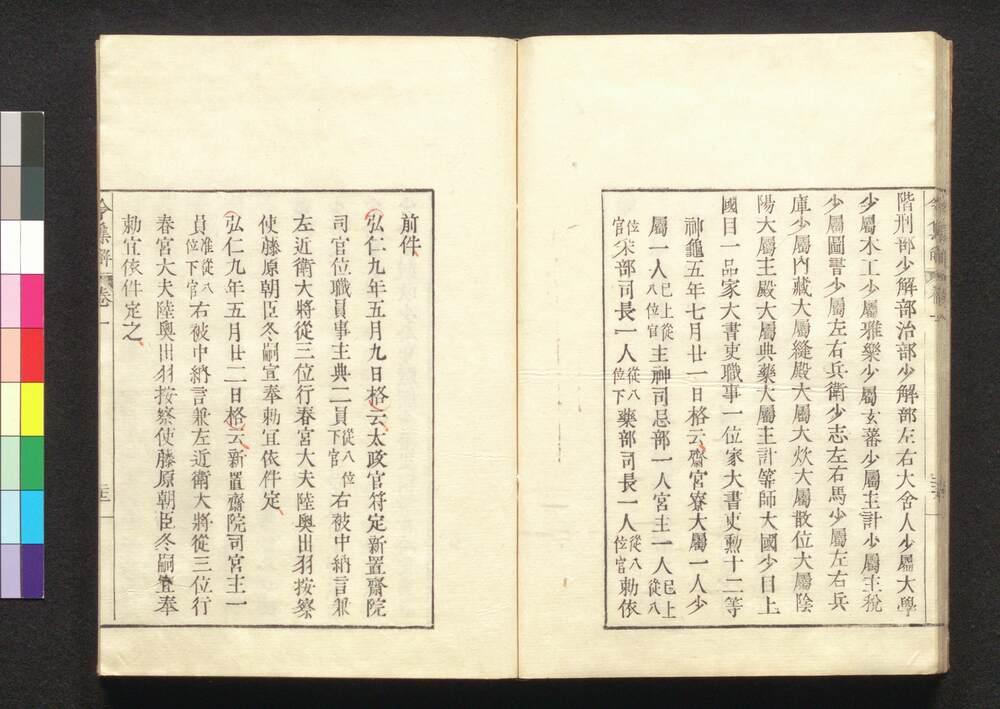 階刑部少解部治部少解部左右大舍人少屬大學
少屬木工少屬雅樂少屬玄蕃少屬主計少屬主稅
少屬圖書少屬左右兵衛少志左右馬少屬左右兵
庫少屬內藏大屬縫殿大屬大炊大屬散位大屬陰
陽大屬主殿大屬典藥大屬主計筭師大國少目上
國目一品家大書吏職事一位家大書吏勳十二等
神龜五年七月廿一日格云齋宮寮大屬一人少
屬一人已上從八位官主神司忌部一人宮主一人已上從八
位官采部司長一人從八位下藥部司長一人從八位官勅依
前件
弘仁九年五月九日格云太政官符定新置齋院
司官位職員事主典二員從八位下官右被中納言兼
左近衛大將從三位行春宮大夫陸奧出羽按察
使藤原朝臣冬嗣宣奉勅宜依件定
弘仁九年五月廿二日格云新置齋院司宮主一
員准從八位下官右被中納言兼左近衛大將從三位行
春宮大夫陸奧出羽按察使藤原朝臣冬嗣宣奉
勅宜依件定之
令集解 卷一